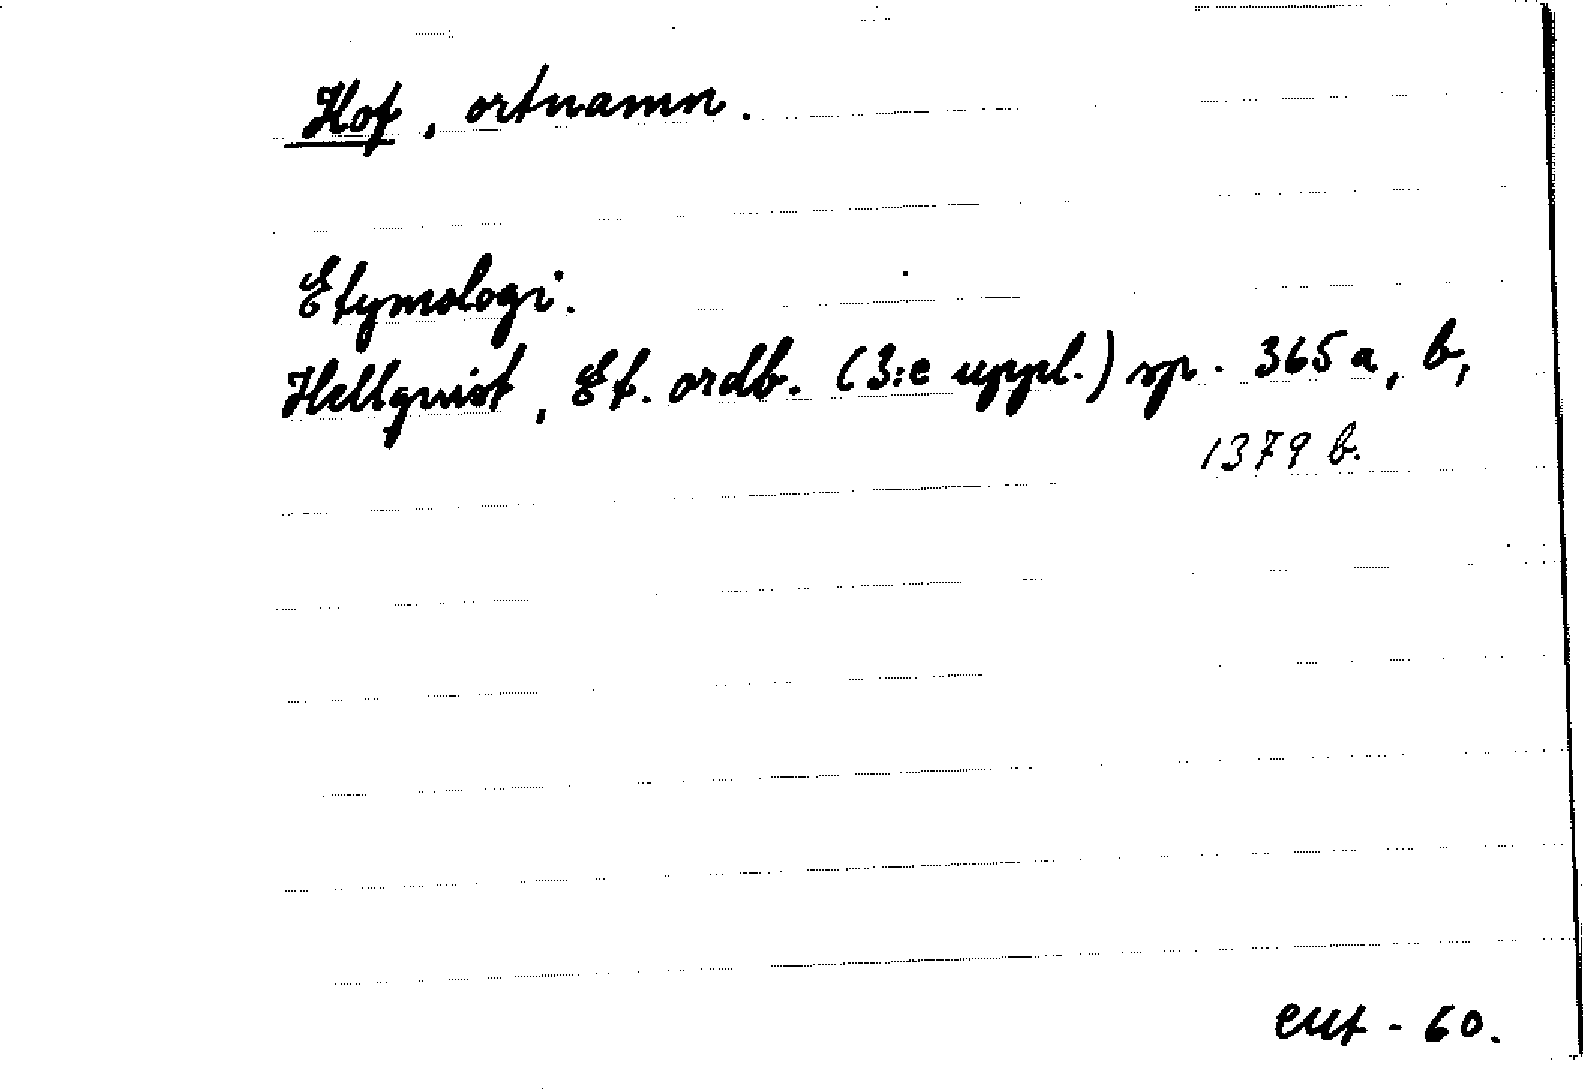 Hof, ortnamn.
Etymologi.
Hellquist, Et. ordb. (3:e uppl.) sp. 365 a, b,
1379 b.
- 60.